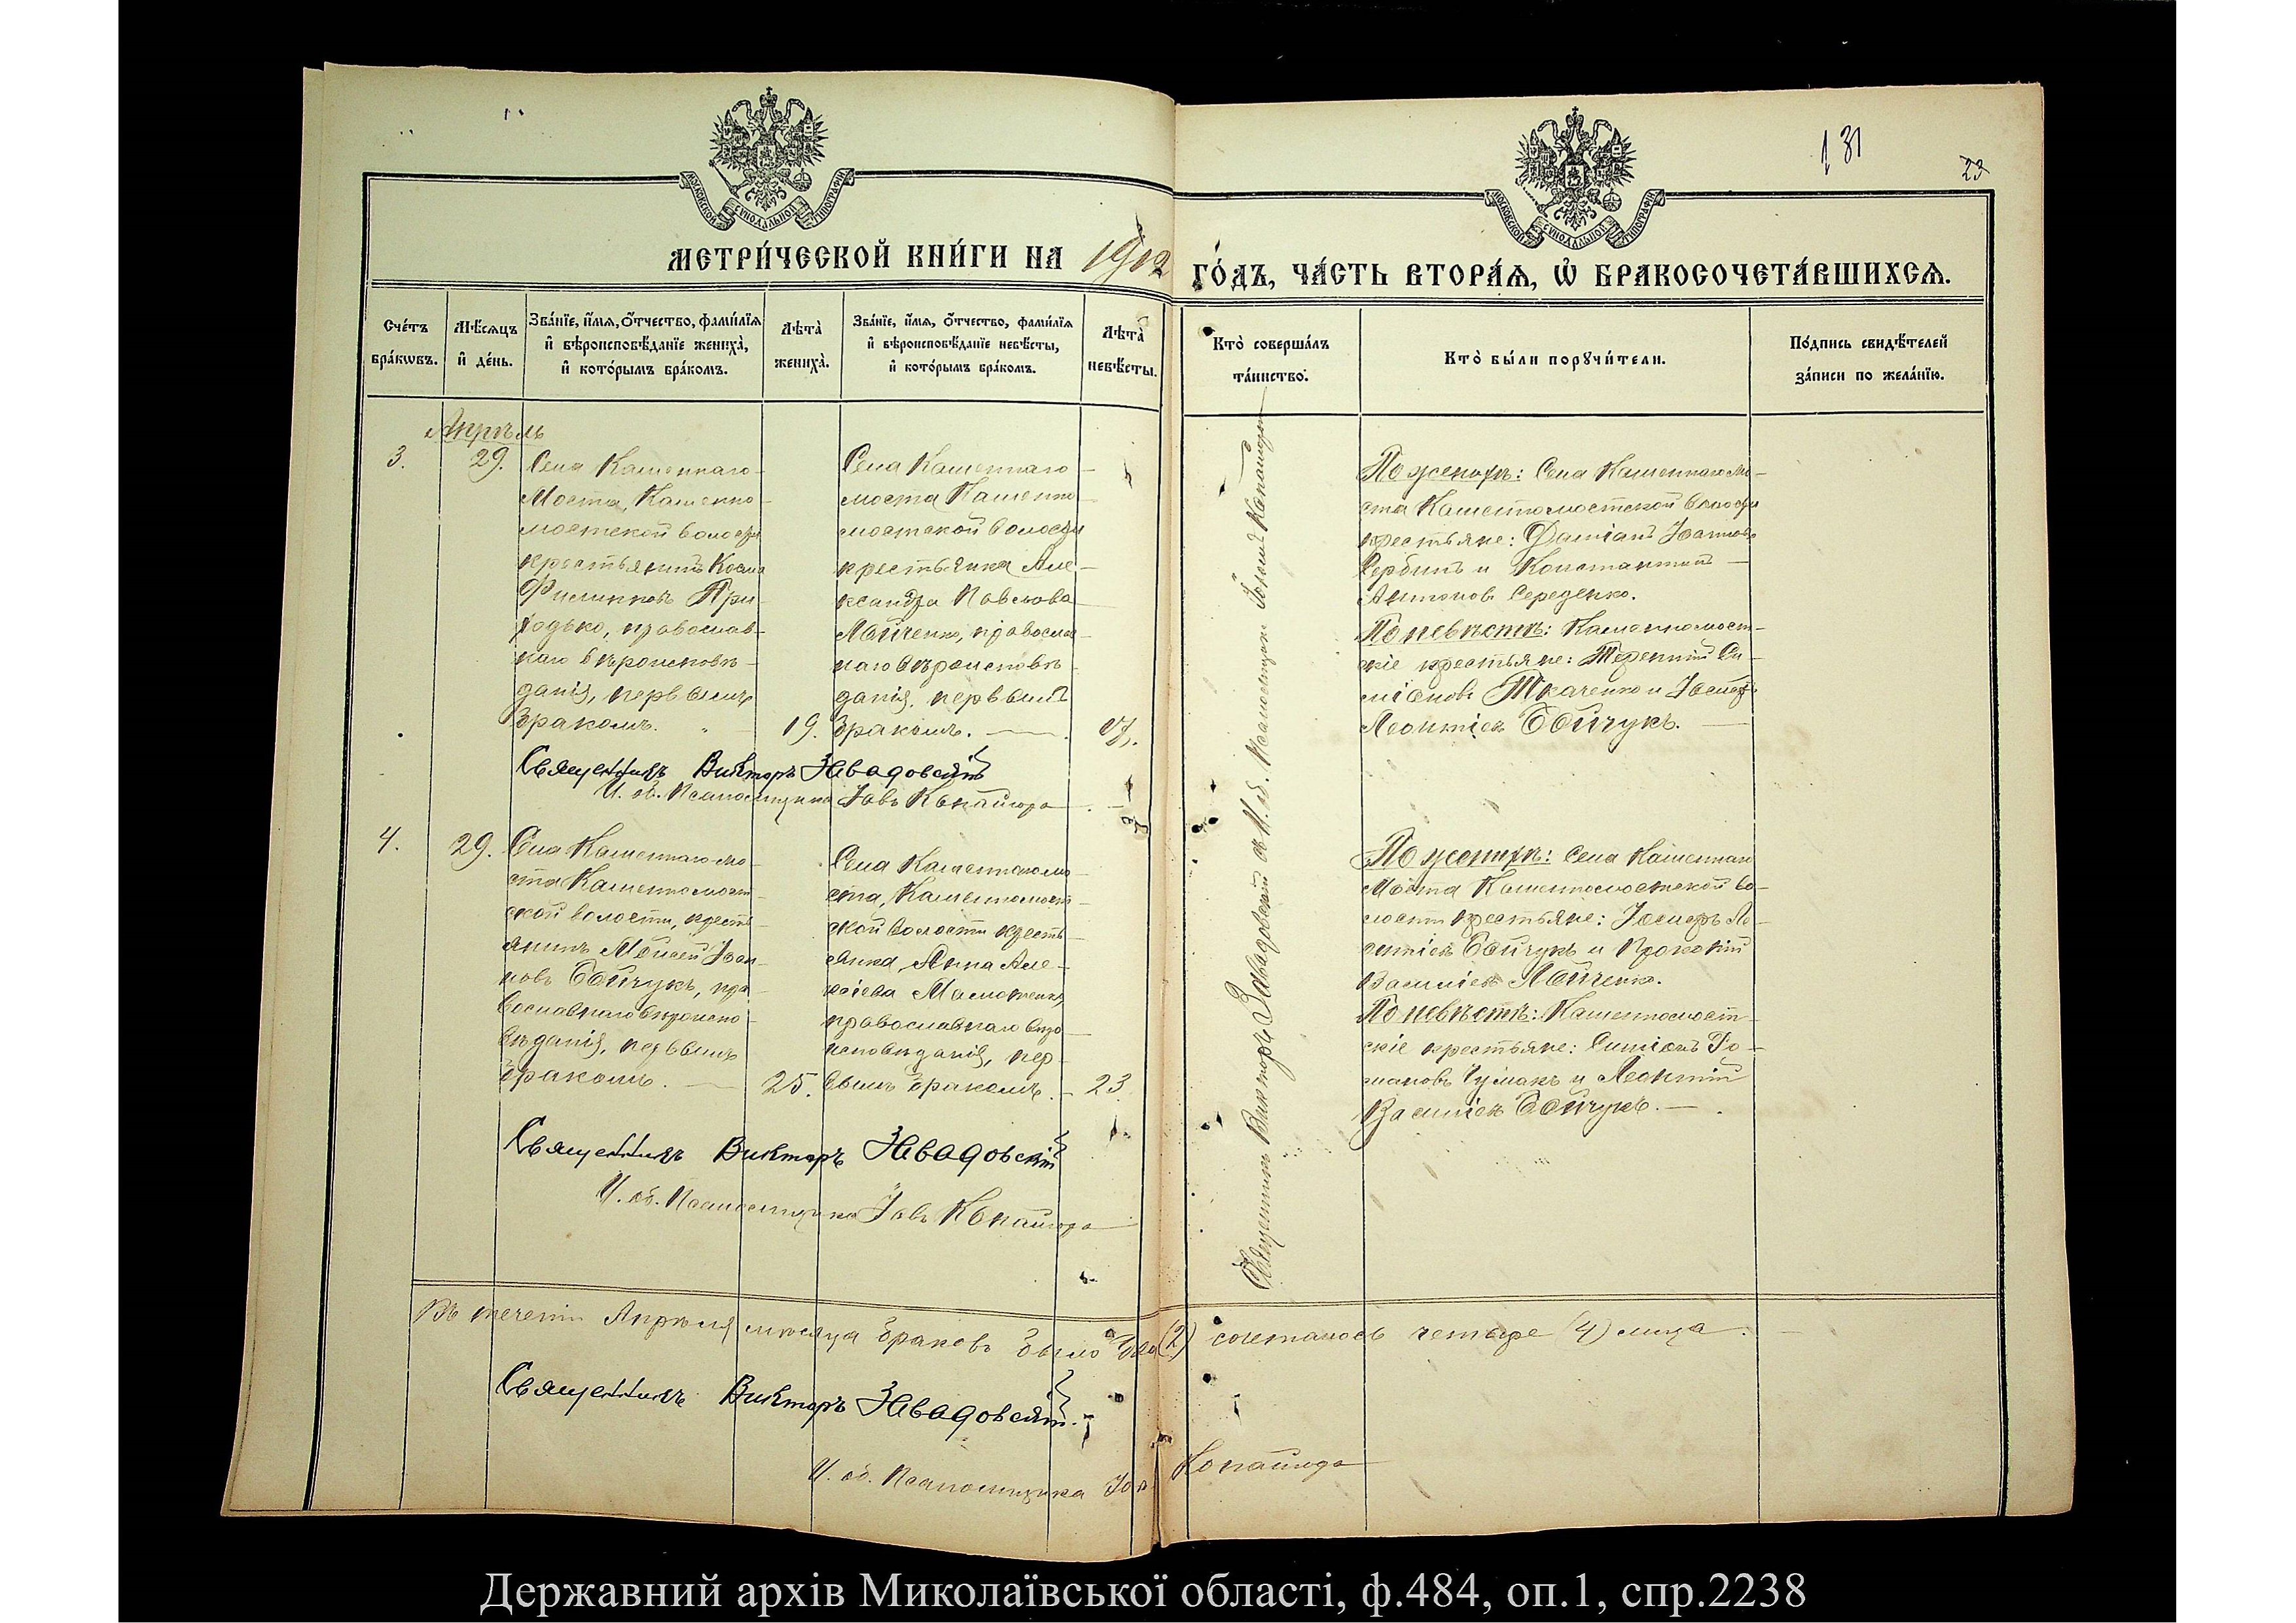 131
23
МОСКОВСКОЙ СУНОДАЛЬНОЙ ТИПОГРАФІИ
МОСКОВСКОЙ СУНОДАЛЬНОЙ ТИПОГРАФІИ
МЕТРИ́ЧЕСКОЙ КНИ́ГИ НА 1912 ГО́ДЪ, ЧА́СТЬ ВТОРА́Ѧ, Ѡ҆ БРАКОСОЧЕТА́ВШИХСѦ.
Сче́тъ бра́кѡвъ.
Мѣ́сѧцъ и҆ де́нь.
Зва́нїе, и҆́мѧ, ѻ҆́тчество, фами́лїѧ и҆ вѣроисповѣ́данїе жениха̀, и҆ кото́рымъ бра́комъ.
Лѣта̀ жениха̀.
Зва́нїе, и҆́мѧ, ѻ҆́тчество, фами́лїѧ и҆ вѣроисповѣ́данїе невѣ́сты, и҆ кото́рымъ бра́комъ.
Лѣта̀ невѣ́сты.
Кто̀ соверша́лъ та́инство.
Кто̀ бы́ли порꙋчи́тели.
По́дпись свидѣ́телей за́писи по жела́нїю.
Апрѣль
3.
29.
Села Каменнаго
Моста, Каменно-
мостской волости
крестьянинъ Косма
Филиппов При
ходько, православ-
наго вѣроисповѣ-
данія, первымъ
бракомъ.
19.
Села Каменнаго
моста Каменно
мостской волости
крестьянка Але-
ксандра Павлова
Мойченко, православ
наго вѣроисповѣ
данія, первымъ
бракомъ.
17.
Священникъ Викторъ Завадовскій
И. об. Псаломщика Іовъ Копайгора
По женихѣ: Села Каменнаго Мо-
ста Каменномостской волости
крестьяне: Даміанъ Іоаннов
Сербинъ и Константинъ
Антонов Середенко.
По невѣстѣ: Каменномост-
скіе крестьяне: Терентій Си-
міоновъ Ткаченко и Іосифъ
Леонтіев Бойчукъ.
4.
29.
Села Каменнаго Мо
ста Каменномост
ской волости, кресть
янинъ Мойсей Іоан
новъ Бойчукъ, пра
вославнаго вѣроиспо-
вѣданія, первымъ
бракомъ.
25.
Села Каменнаго мо
ста, Каменномост
ской волости кресть
янка Анна Але-
ксіева
православнаго вѣро
исповѣданія, пер
вымъ бракомъ.
23.
Священникъ Викторъ Завадовскій
И. об. Псаломщика Іовъ Копайгора
По женихѣ: Села Каменнаго
Моста Каменномостской во-
лости крестьяне: Іосифъ Ле
онтіев Бойчукъ и Прокопій
Василіев Мойченко.
По невѣстѣ: Каменномост
скіе крестьяне: Симіонъ Ро-
мановъ Чумакъ и Леонтій
Василіев Бойчукъ.
Священникъ Викторъ Завадовскій съ И. об. Псаломщика Іовомъ Копайгорою
Въ теченіи Апрѣля мѣсяца браковъ было два (2) сочеталось четыре (4) лица.
Священникъ Викторъ Завадовскій.
И. об. Псаломщика Іовъ Копайгора
Державний архів Миколаївської області, ф.484, оп.1, спр.2238